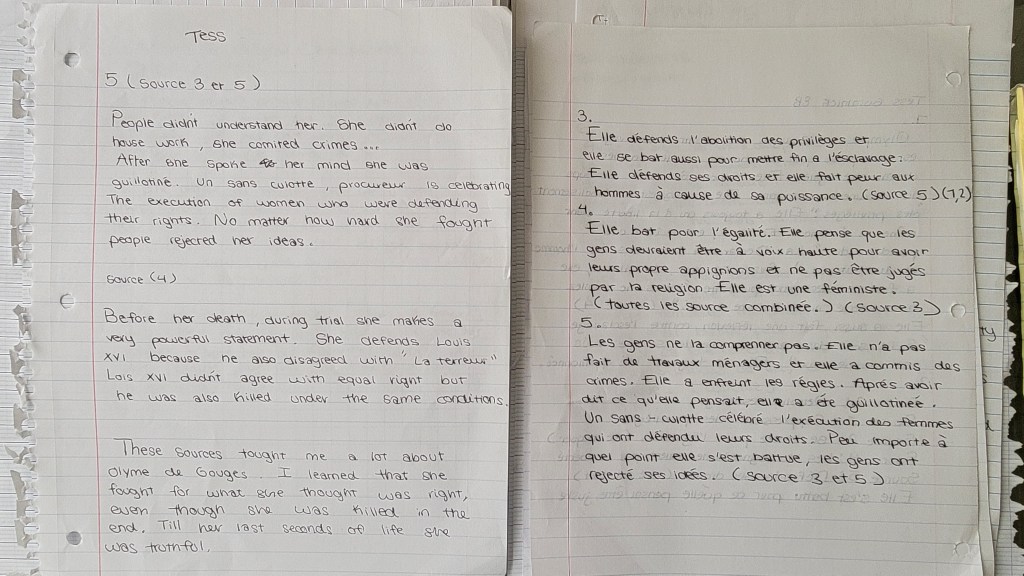 Tess
5 (source 3 et 5)
People didn't understand her. She didn't do
house work, she comited crimes...
After she spoke her mind she was
guillotine. Un sans culotte, procureur is celebrating
The execution of women who were defending
their rights. No matter how hard she fought
people rejected her ideas.
source (4)
Before her death, during trial she makes a
very powerful statement. She defends Louis
XVI because he also disagreed with "La terreur"
Lois XVI didn't agree with equal right but
he was also killed under the same conditions.
These sources tought me a lot about
Olyme de Gouges. I learned that she
fought for what she thought was right,
even though she was killed in the
end. Till her last seconds of life she
was truthful.
3.
Elle défends l'abolition des privilèges et
elle se bat aussi pour mettre fin a l'ésclavage.
Elle défends ses droits et elle fait peur aux
hommes à cause de sa puissance. (source 5) (1,2)
4.
Elle bat pour l'égalité. Elle pense que les
gens devraient être à voix haute pour avoir
leurs propre appignions et ne pas être jugés
par la religion Elle est une féministe.
(toutes les source combinée.) (source 3)
5.
Les gens ne la comprenner pas. Elle n'a pas
fait de travaux ménagers et elle a commis des
crimes. Elle a enfreint les règles. Aprés avoir
dit ce qu'elle pensait, elle a éte guillotineé.
Un sans-culotte célébré l'exécution des femmes
qui ont défendu leurs droits. Peu importe à
quel point elle s'est battue, les gens ont
rejecté ses idées. (source 3 et 5)